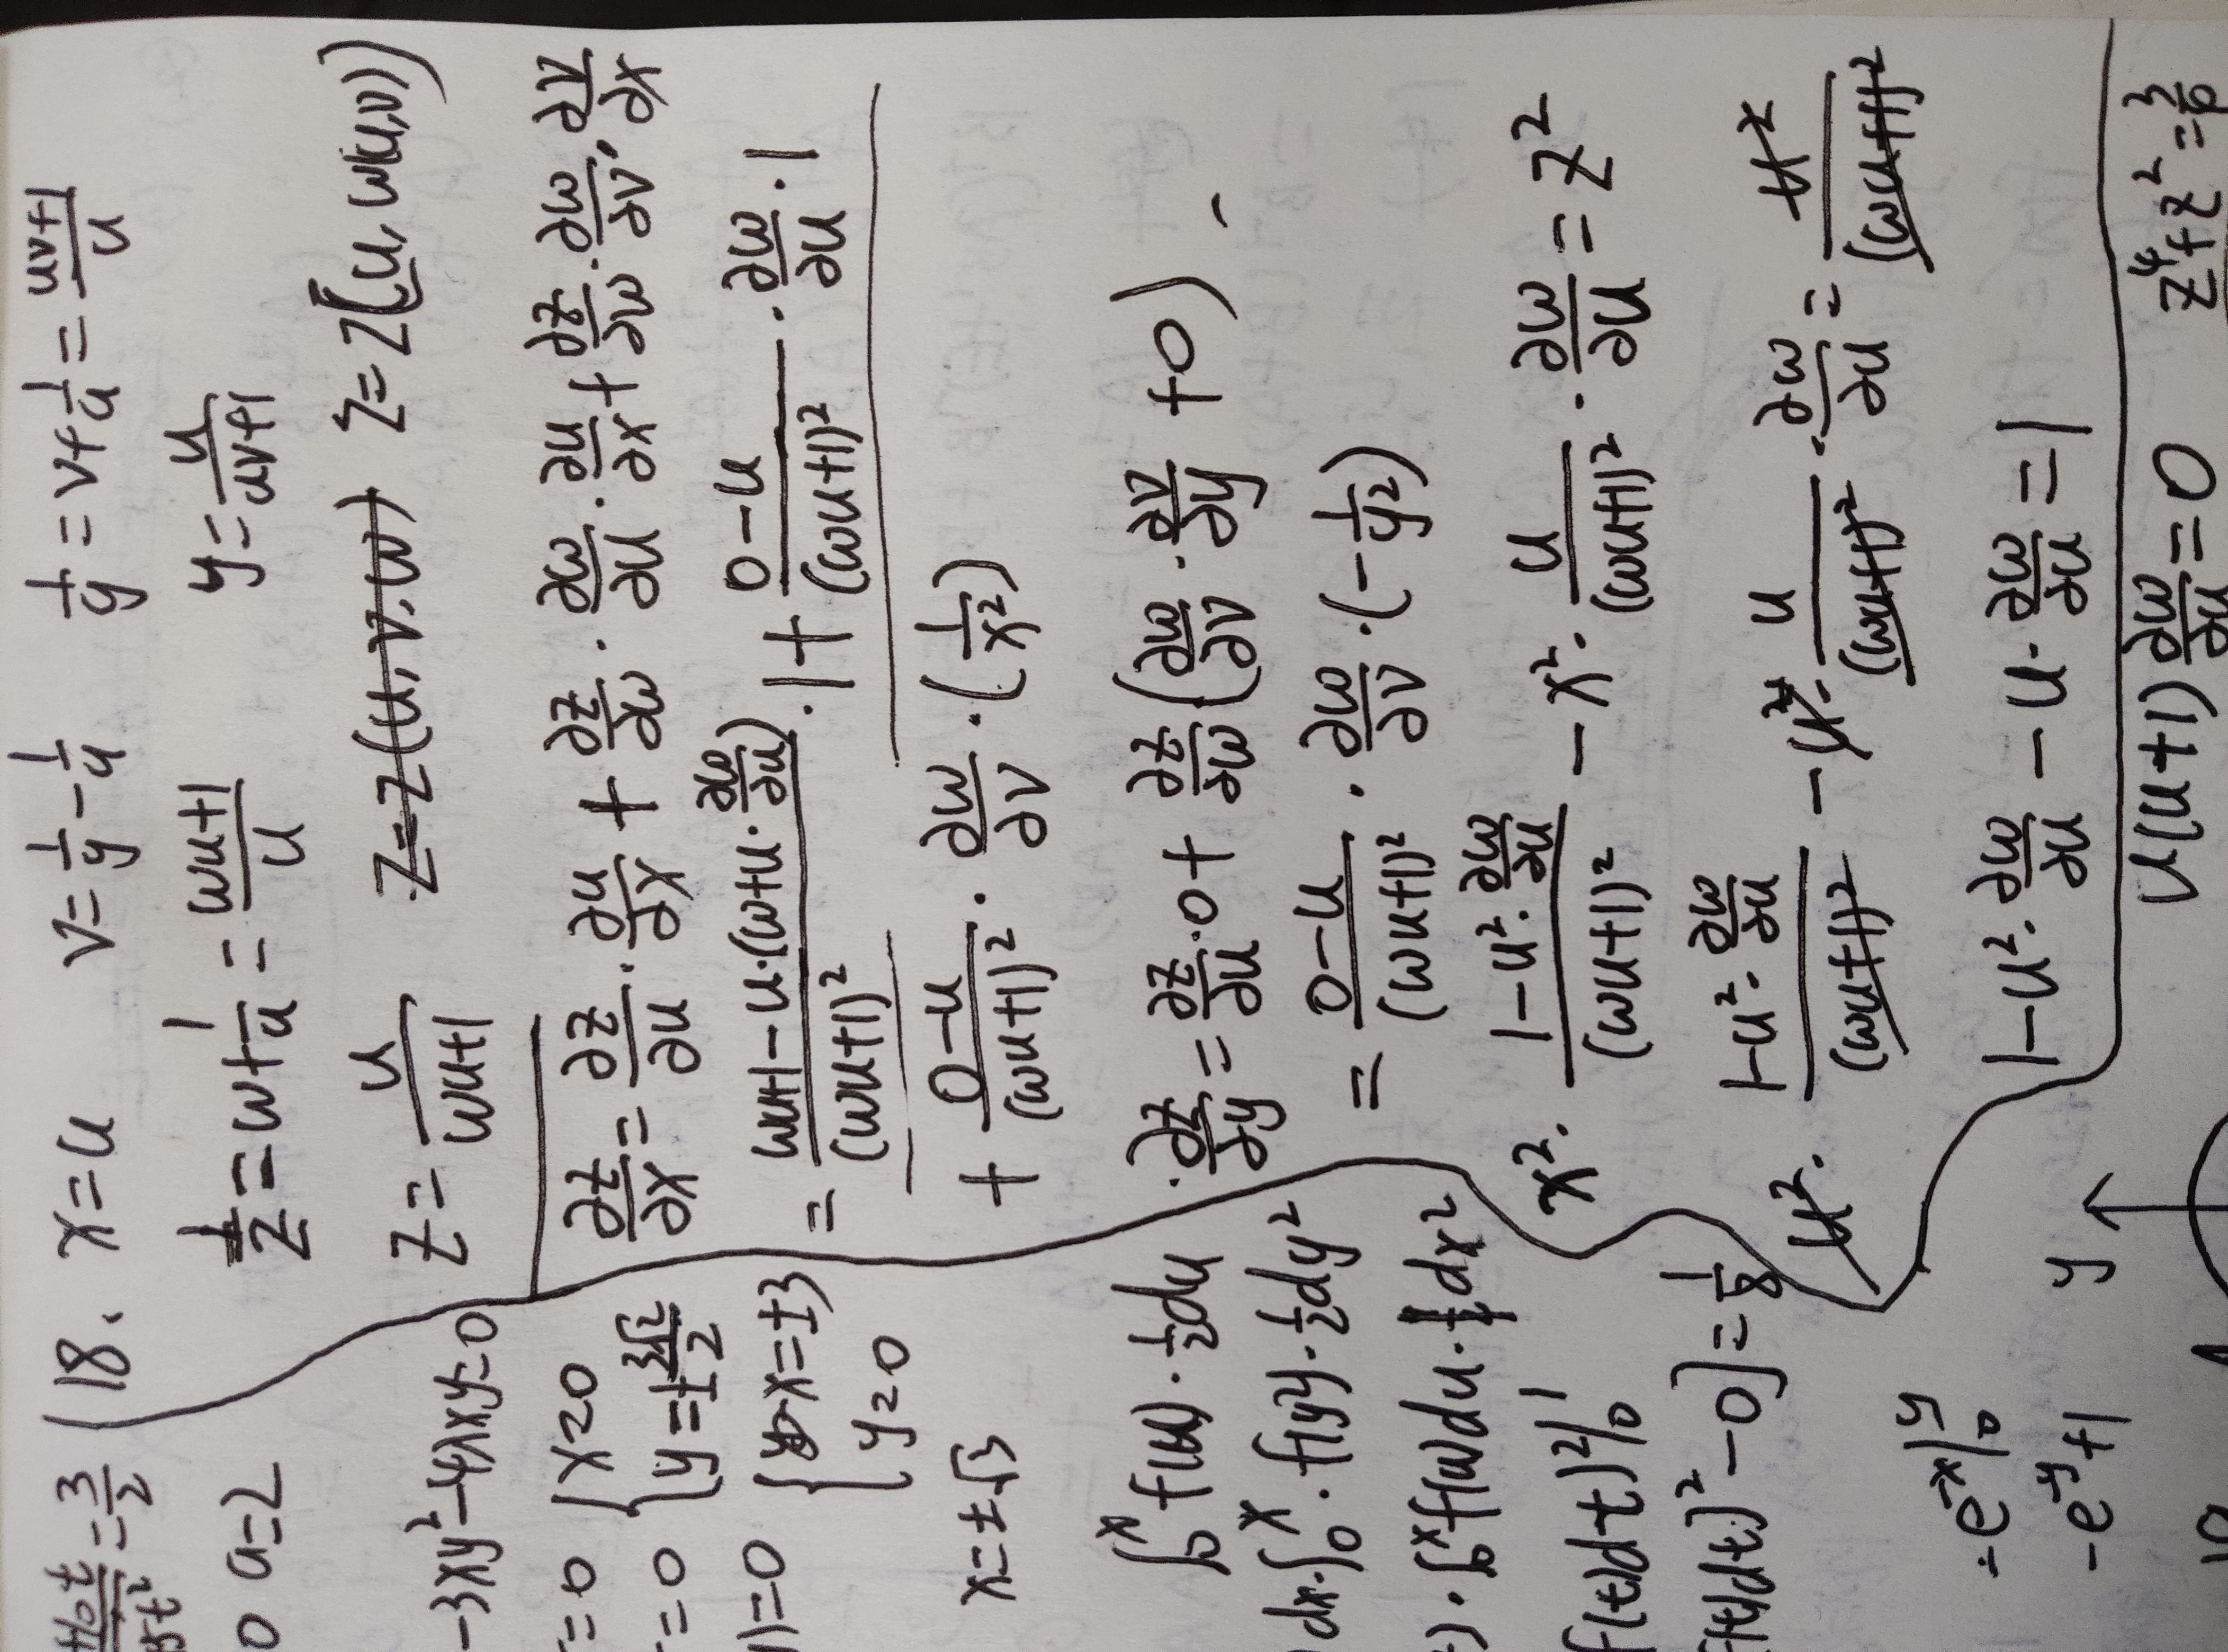 18、 x=u v=1/y-1/u 1/y=v+1/u=(uv+1)/u
1/z=w+1/u=(wu+1)/u y=u/(uv+1)
z=u/(wu+1) z=z(u,v,w) z=z(u,w(u,v))
∂z/∂x=∂z/∂u·∂u/∂x+∂z/∂w·∂w/∂u·∂u/∂x+∂z/∂w·∂w/∂v·∂v/∂x
=(wu+1-u·(w+u·∂w/∂u))/(wu+1)²·1+(0-u)/(wu+1)²·∂w/∂u·1
+(0-u)/(wu+1)²·∂w/∂v·(1/x²)
∂z/∂y=∂z/∂u·0+∂z/∂w(∂w/∂v·∂v/∂y+0)
=(0-u)/(wu+1)²·∂w/∂v·(-1/y²)
x²·(1-u²·∂w/∂u)/(wu+1)²-x²·u/(wu+1)²·∂w/∂u=z²
u²·(1-u²·∂w/∂u)/(wu+1)²-u²·u/(wu+1)²·∂w/∂u=u²/(wu+1)²
1-u²·∂w/∂u-u·∂w/∂u=1
u(u+1)∂w/∂u=0
z⁴+z²=
=3/2
0 a=2
-3xy²-4λxy=0
=0 {x=0
=0 {y=±3√2/2
)=0 {x=±3
{y=0
x=±√3
∫₀ˣf(u)·½du
dx·∫₀ˣ·f(y²)·½dy²
)·∫₀ˣf(u)du·dx²
f(t)dt)²|₀¹
f(t)dt)²-0]=1/8
=-e⁻ˣ|₀ʸ
-e⁻ʸ+1
y